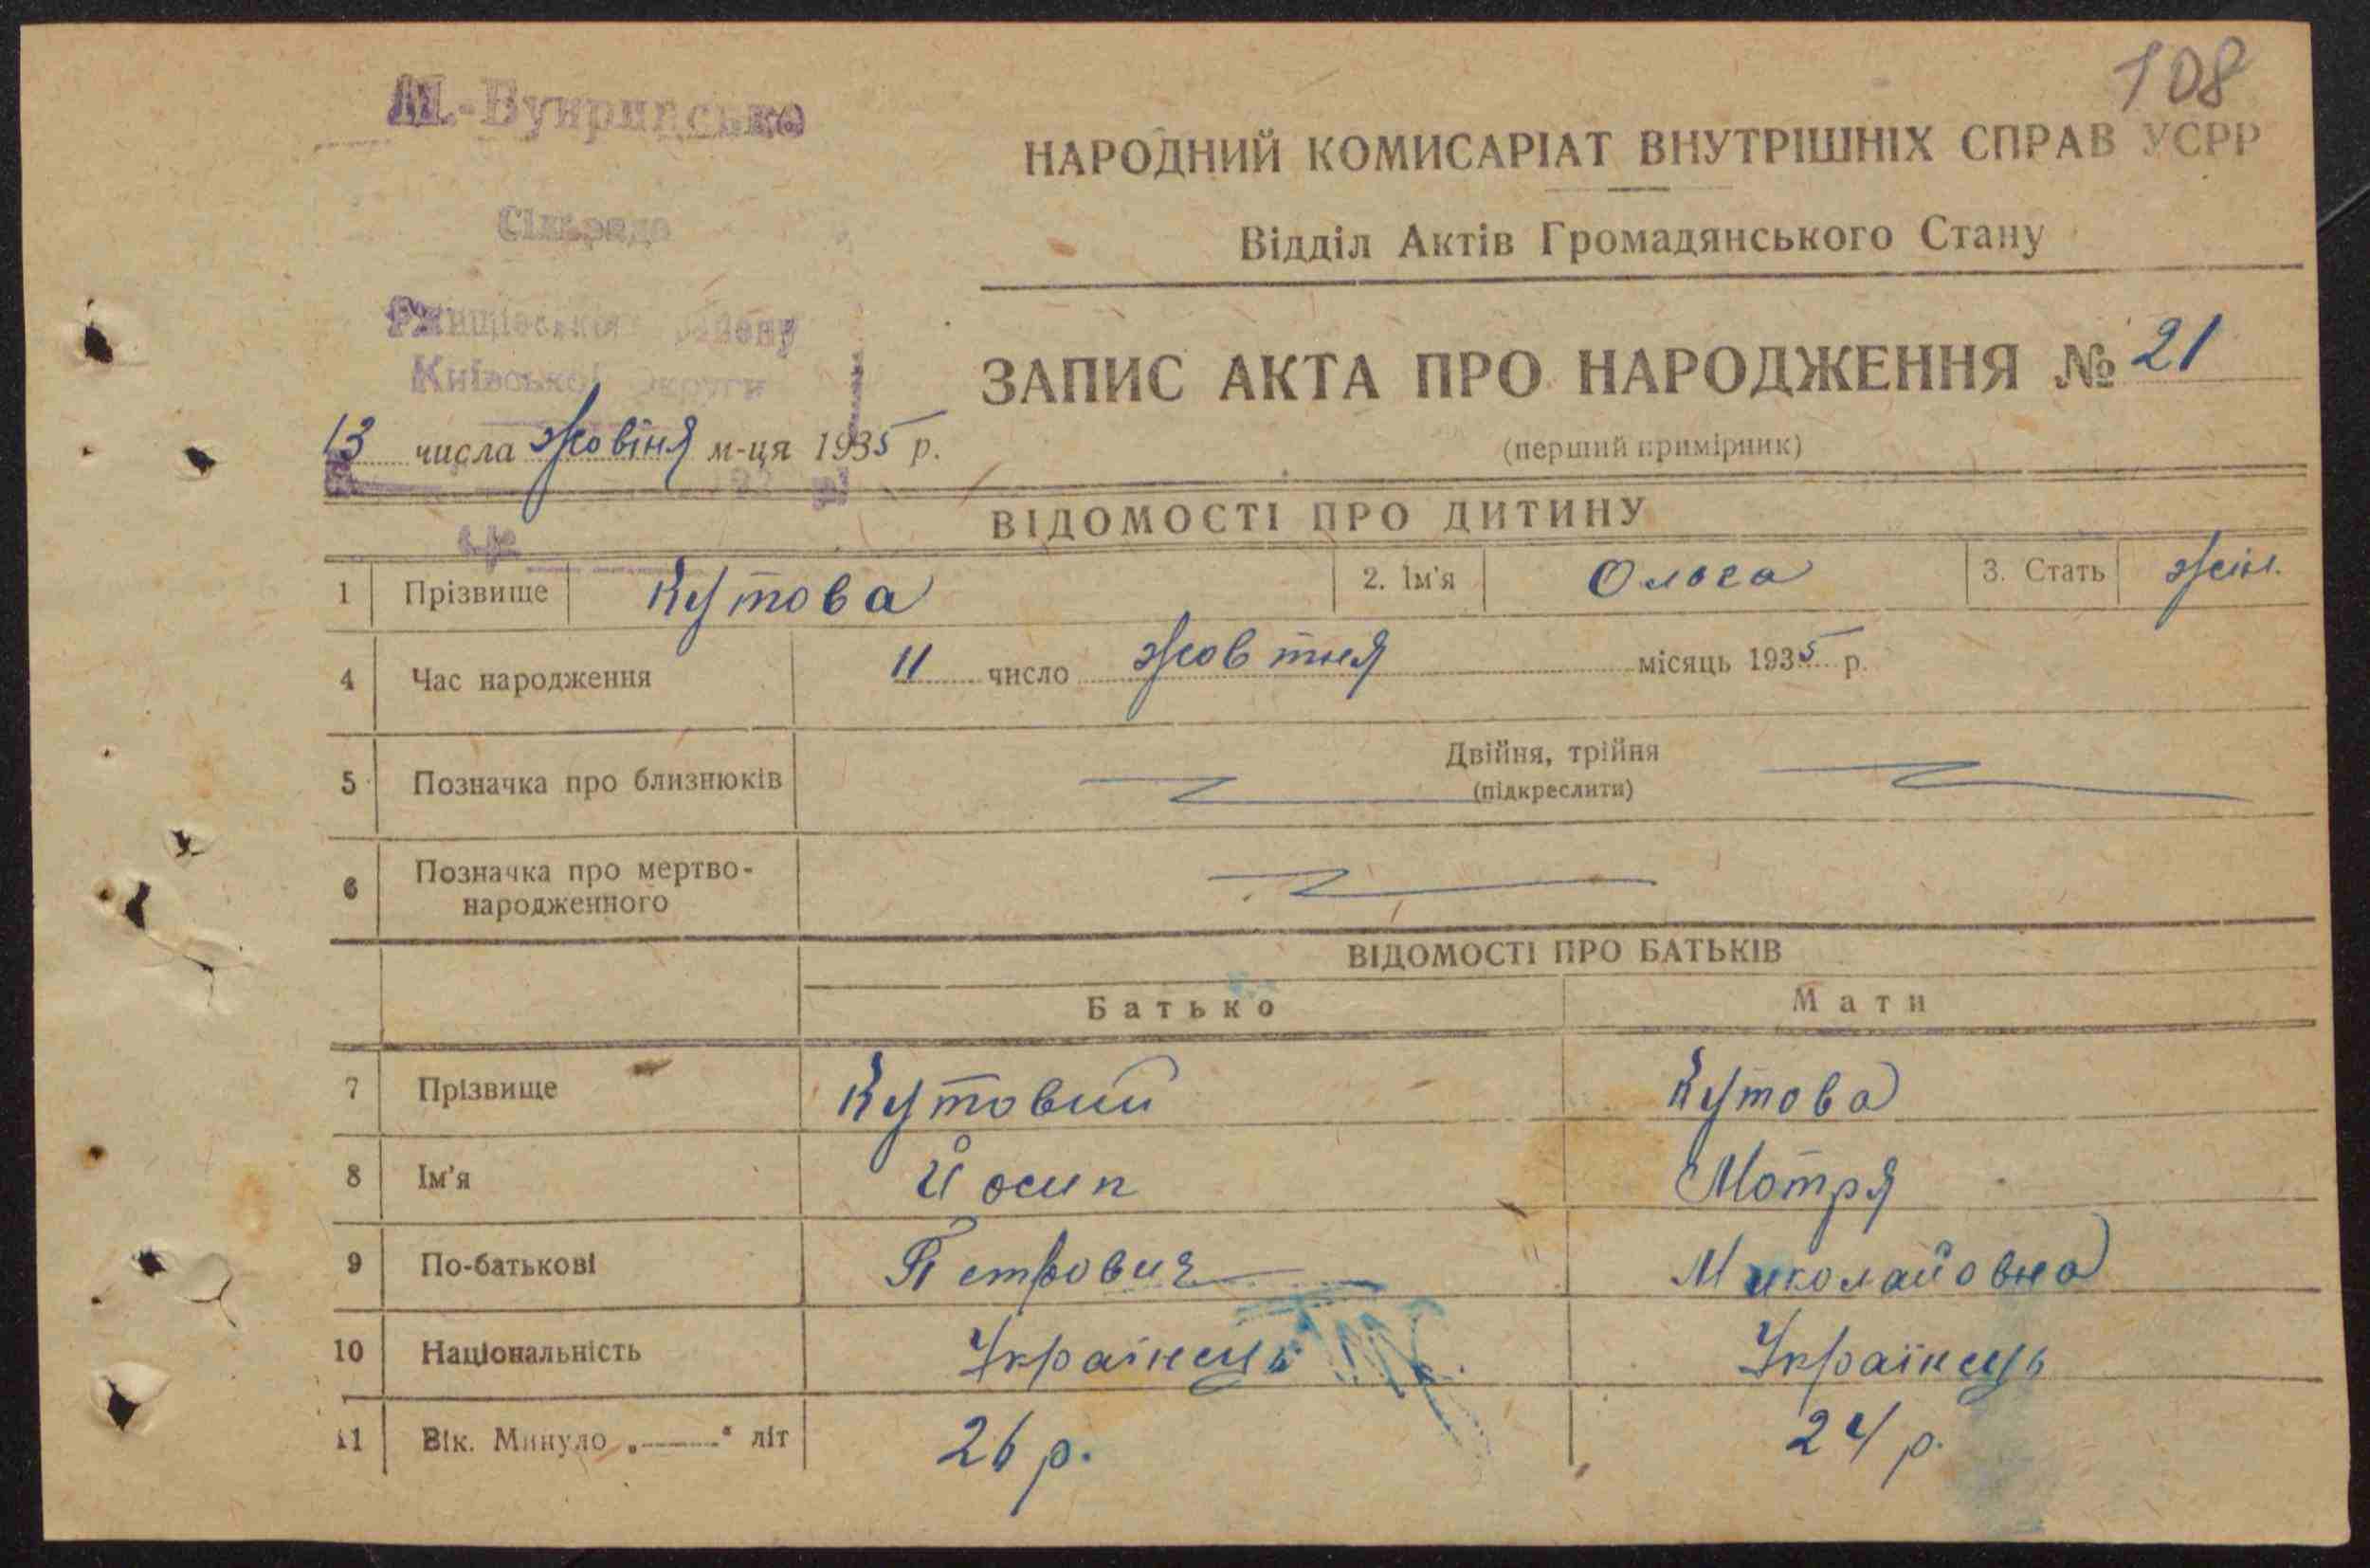 108
М.-Букринська
Сільрада
Ржищівського району
Київської Округи
НАРОДНИЙ КОМИСАРІАТ ВНУТРІШНІХ СПРАВ УСРР
Відділ Актів Громадянського Стану
ЗАПИС АКТА ПРО НАРОДЖЕННЯ № 21
(перший примірник)
13 числа жовтня м-ця 1935 р.
ВІДОМОСТІ ПРО ДИТИНУ
1 Прізвище Кутова 2. Ім'я Ольга 3. Стать жін.
4 Час народження 11 число жовтня місяць 1935 р.
5 Позначка про близнюків Двійня, трійня
(підкреслити)
6 Позначка про мертво-
народженного
ВІДОМОСТІ ПРО БАТЬКІВ
Батько Мати
7 Прізвище Кутовий Кутова
8 Ім'я Йосип Мотря
9 По-батькові Петрович Миколайовна
10 Національність Українець Українець
11 Вік. Минуло „——" літ 26 р. 24 р.